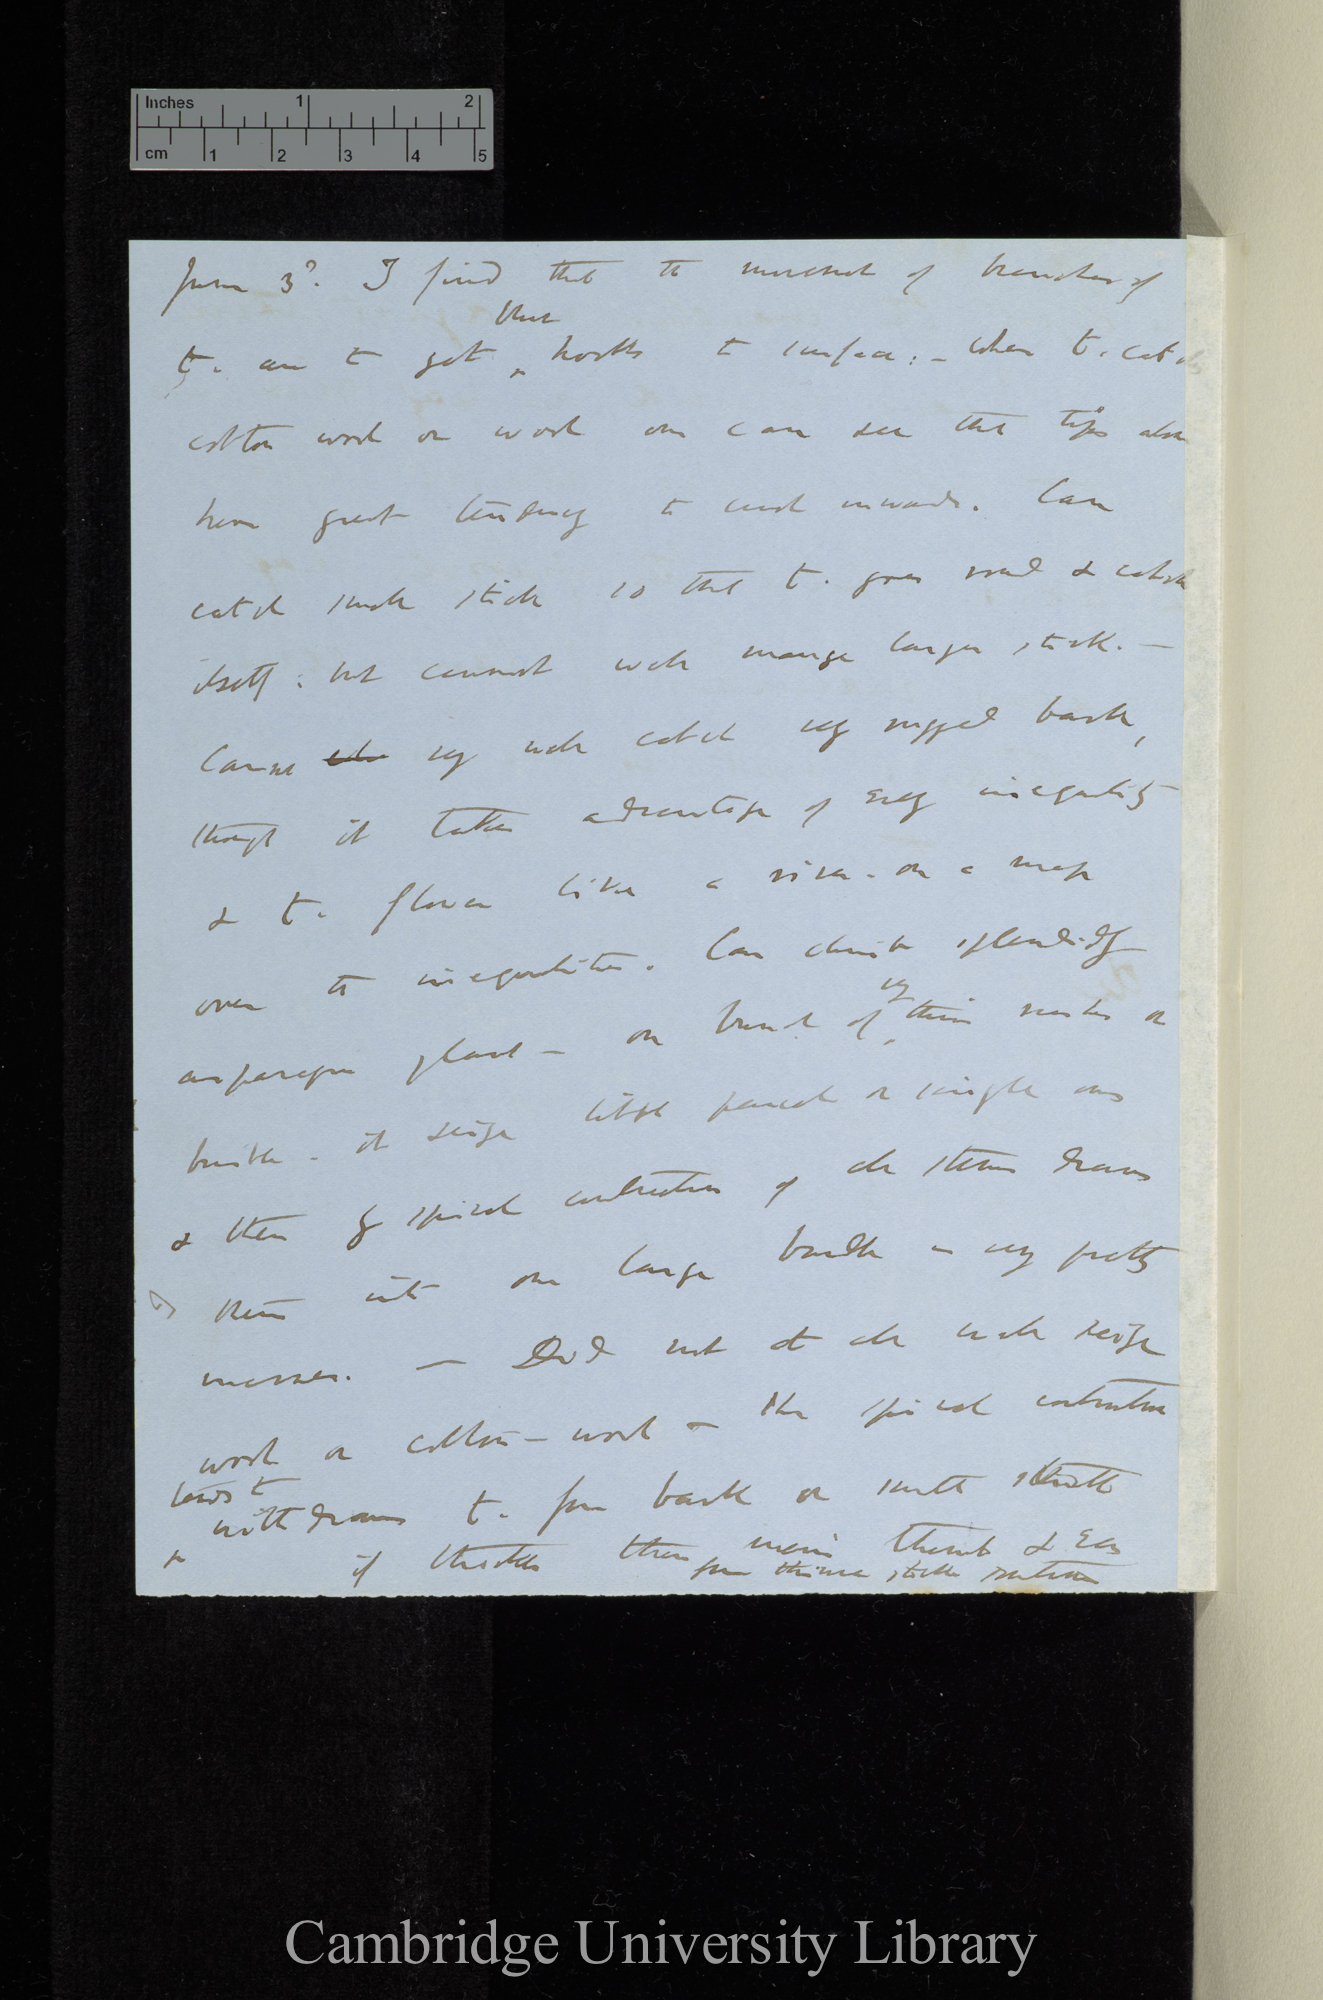 Inches 1 2
cm 1 2 3 4 5
June 3d. I find that the movement of branches of
t. are to get their hooks to surface; — when t. catch
cotton wool or wool one can see that tips alone
have great tendency to curl inwards. Can
catch small stick so that t. goes round & catch
itself: but cannot well manage larger stick. —
Cannot very well catch very rugged bark,
though it takes advantage of every inequality
& t. flows like a river on a map
over the inequalities. Can climb splendidly
asparagus plant — on bunch of very thin sticks or
bristle. it seize little parcel or single ones
& then by spiral contraction of all stems draws
them into one large bundle in very pretty
manner. — Did not at all well seize
wool or cotton-wool — The spiral contraction
tends to
withdraws t. from bark or
if thicker than main & even
from thinner sticks
Cambridge University Library